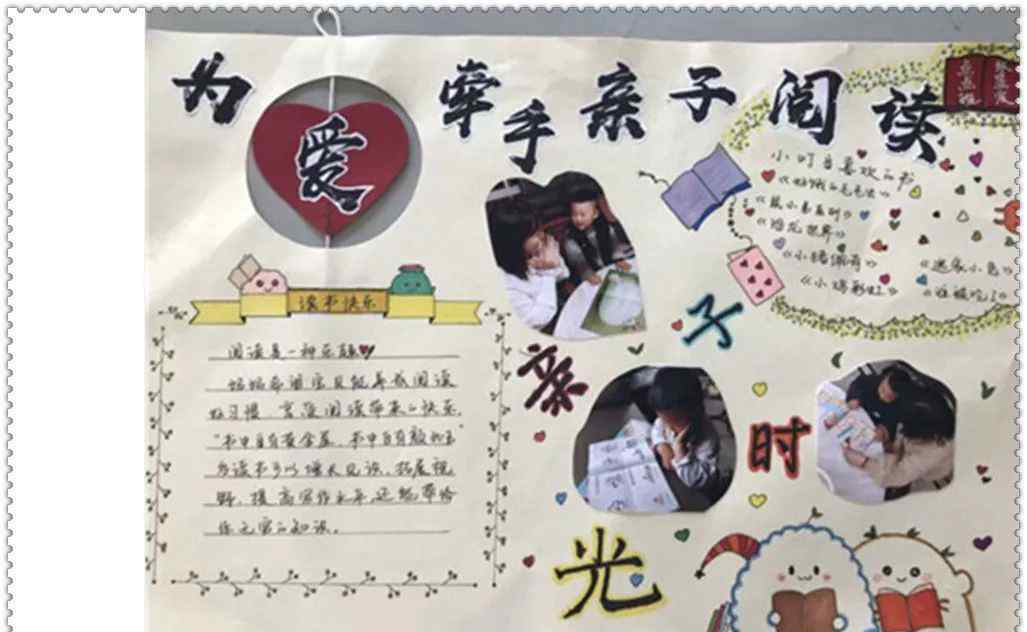 为爱牵手亲子阅读
小叮当喜欢的书
《好饿的毛毛虫》
《鼠小弟系列》
《恐龙世界》
《小猪佩奇》
《迷宫小鱼》
《小鸡彩虹》
《谁被吃了》
读书快乐
阅读是一种乐趣
妈妈希望宝贝能养成阅读
好习惯,享受阅读带来的快乐,
"书中自有黄金屋,书中自有颜如玉"
多读书可以增长见识、拓展视
野、提高写作水平,还能带给
你无穷的知识。
亲子时光